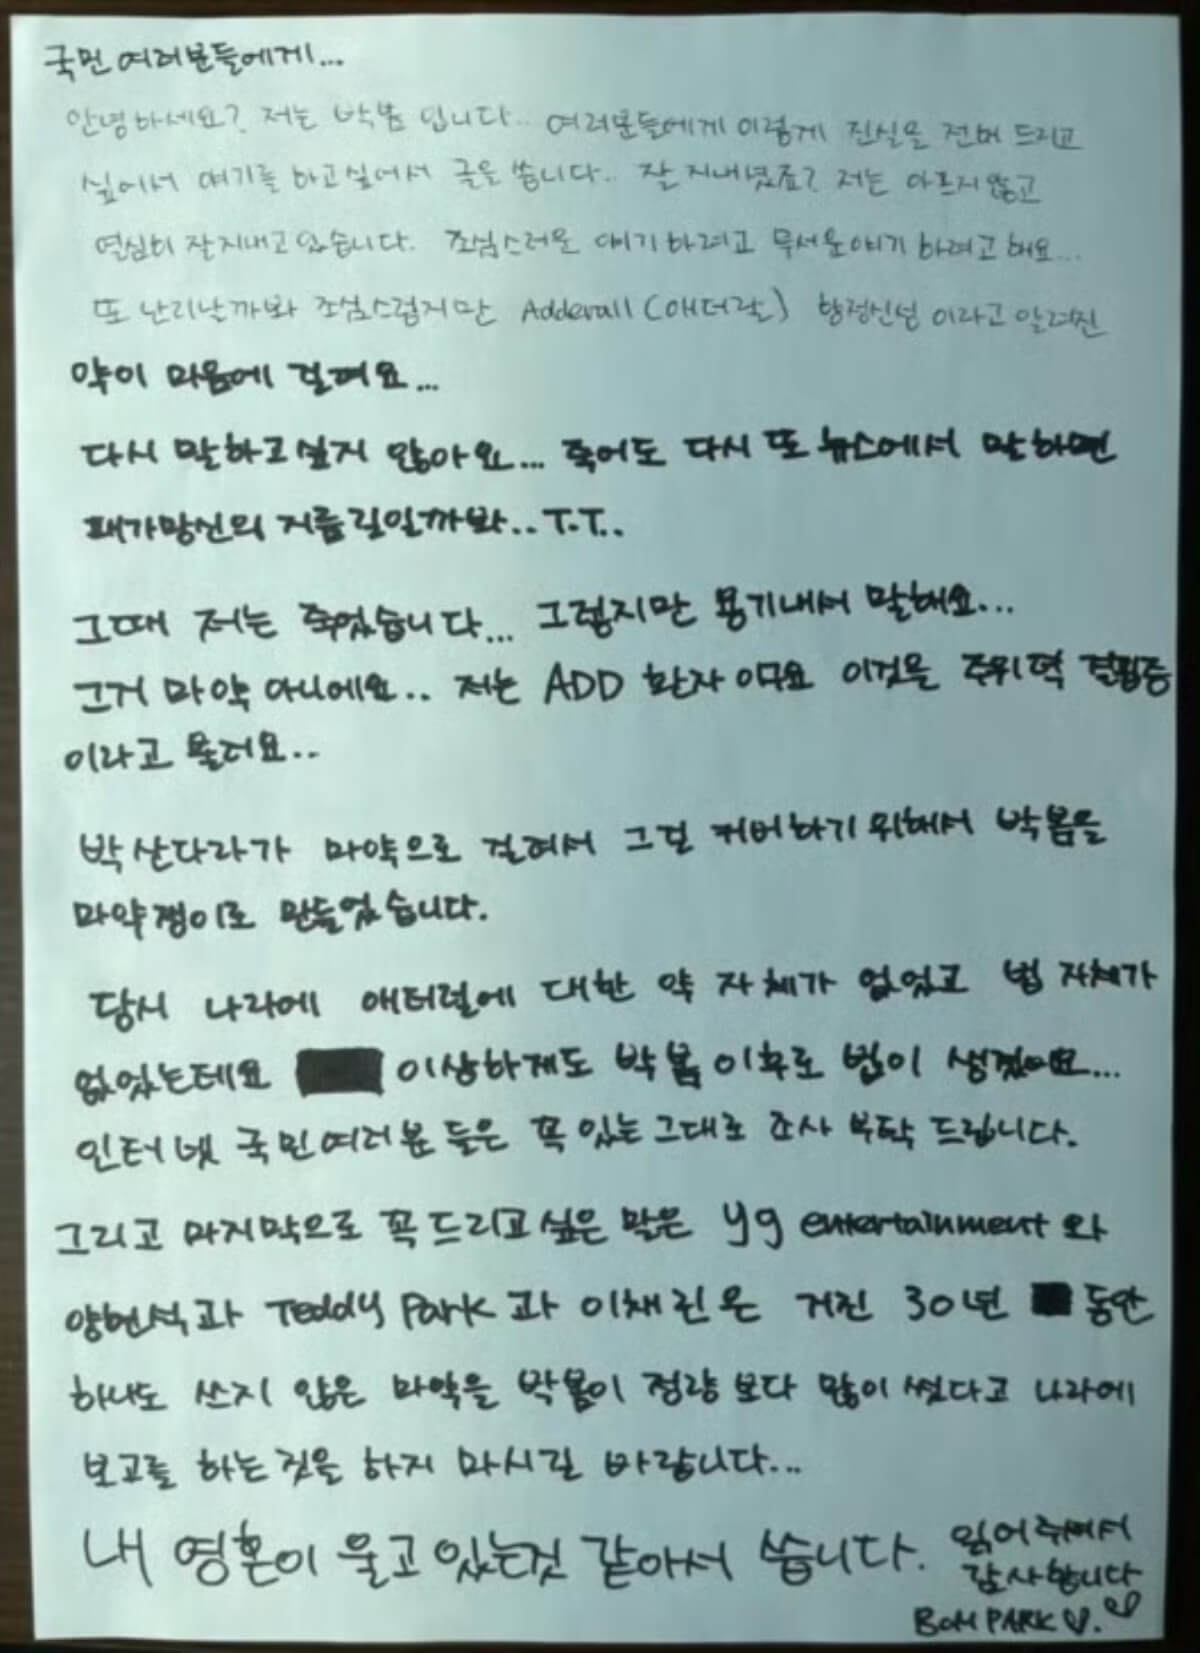 국민 여러분들에게...
안녕하세요? 저는 박봄 입니다.. 여러분들에게 이렇게 진실을 전버 드리고
싶어서 얘기를 하고싶어서 글을 씁니다.. 잘 지내셨죠? 저는 아프지않고
열심히 잘지내고 있습니다. 조심스러운 얘기하려고 무서운얘기 하려고 해요...
또 난리날까봐 조심스럽지만 Adderall (애더랄) 향정신성 이라고 알려진
약이 마음에 걸려요...
다시 말하고싶지 않아요... 죽어도 다시 또 뉴스에서 말하면
패가망신의 지름길일까봐.. T.T..
그때 저는 죽었습니다... 그렇지만 용기내서 말해요...
그거 마약 아니에요.. 저는 ADD 환자 이구요 이것은 주위력 결핍증
이라고 불러요..
박산다라가 마약으로 걸려서 그걸 커버하기 위해서 박봄을
마약쟁이로 만들었습니다.
당시 나라에 애터럴에 대한 약 자체가 없었고 법 자체가
없었는데요 이상하게도 박봄이후로 법이 생겼어요...
인터넷 국민여러분 들은 꼭 있는그대로 조사 부탁 드립니다.
그리고 마지막으로 꼭 드리고싶은 말은 yg entertainment 와
양현석과 Teddy Park 과 이채린은 거진 30년 동안
하나도 쓰지 않은 마약을 박봄이 정량보다 많이 썼다고 나라에
보고를 하는것을 하지 마시길 바랍니다...
내 영혼이 울고있는것 같아서 씁니다.
읽어주셔서
감사합니다
BOM PARK ♡. ♡